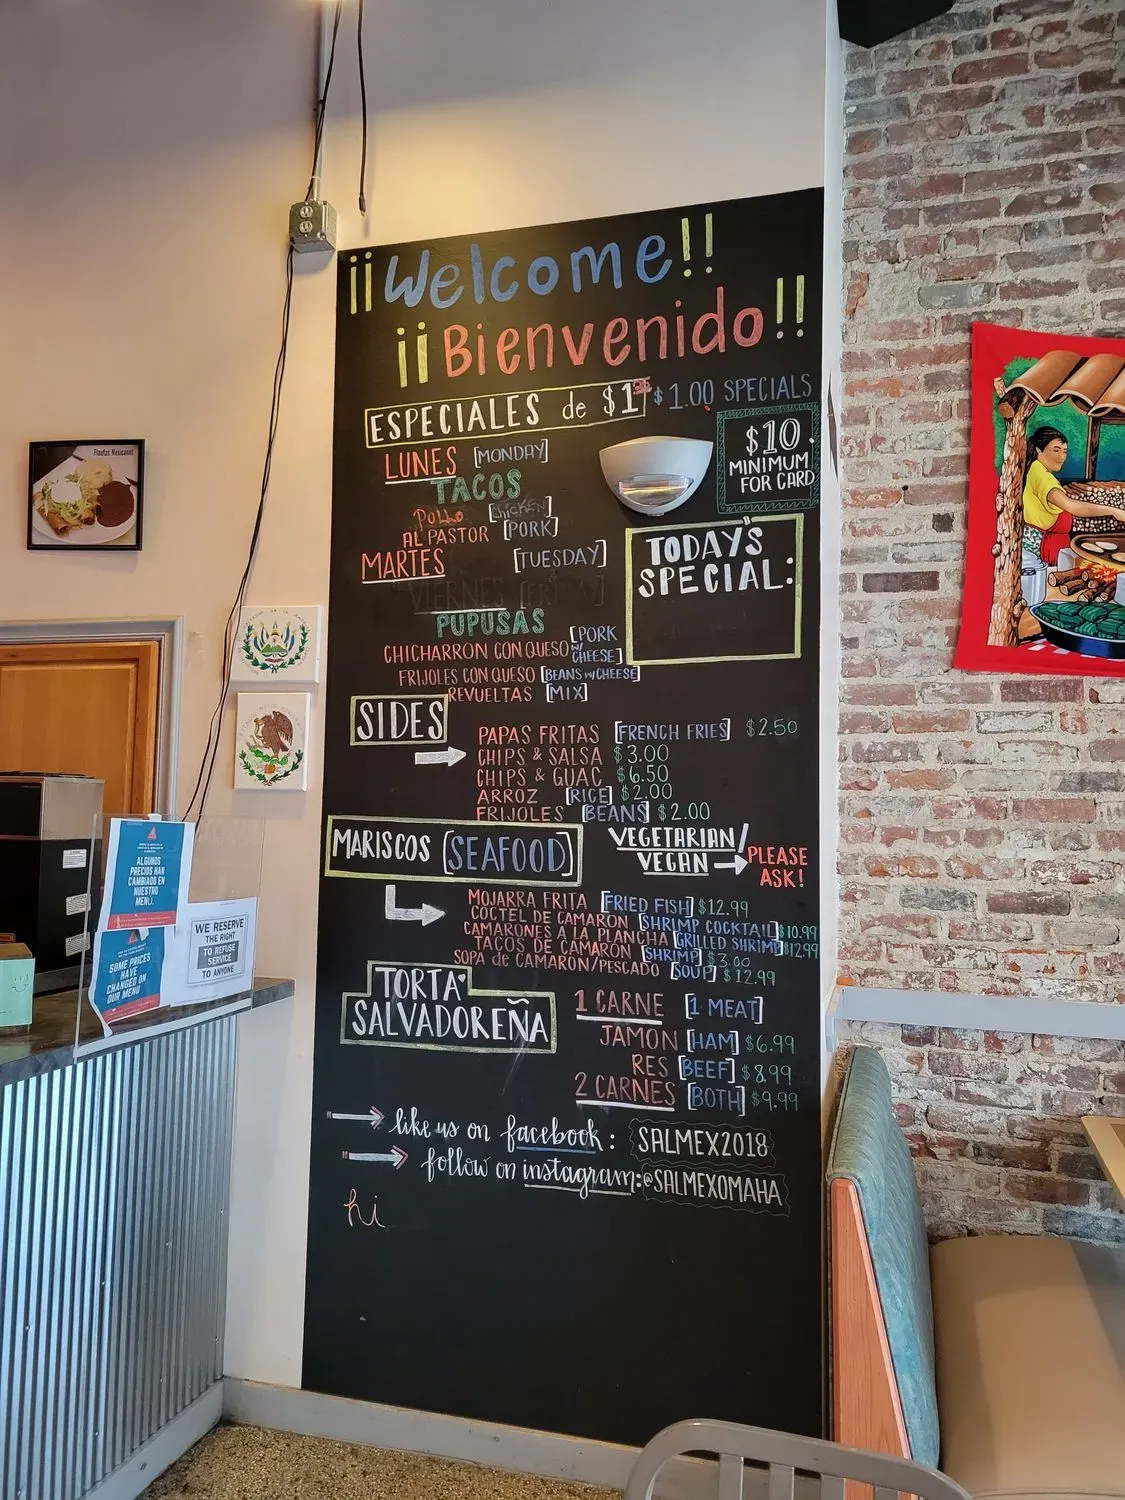 ¡¡Welcome!!
¡¡Bienvenido!!
ESPECIALES de $1²⁵ $1.00 SPECIALS
$10
MINIMUM
FOR CARD
LUNES [MONDAY]
TACOS
POLLO [CHICKEN]
AL PASTOR [PORK]
MARTES [TUESDAY]
VIERNES [FRIDAY]
PUPUSAS
CHICHARRON CON QUESO [PORK W/ CHEESE]
FRIJOLES CON QUESO [BEANS w/CHEESE]
REVUELTAS [MIX]
TODAY'S
SPECIAL:
SIDES
PAPAS FRITAS [FRENCH FRIES] $2.50
CHIPS & SALSA $3.00
CHIPS & GUAC $6.50
ARROZ [RICE] $2.00
FRIJOLES [BEANS] $2.00
MARISCOS [SEAFOOD]
VEGETARIAN/
VEGAN → PLEASE
ASK!
MOJARRA FRITA [FRIED FISH] $12.99
COCTEL DE CAMARON [SHRIMP COCKTAIL] $10.99
CAMARONES A LA PLANCHA [GRILLED SHRIMP] $12.99
TACOS DE CAMARON [SHRIMP] $3.00
SOPA de CAMARON/PESCADO [SOUP] $12.99
TORTA
SALVADOREÑA
1 CARNE [1 MEAT]
JAMON [HAM] $6.99
RES [BEEF] $8.99
2 CARNES [BOTH] $9.99
like us on facebook: SALMEX2018
follow on instagram: @SALMEXOMAHA
hi
Flautas Mexicanas
ALGUNOS
PRECIOS HAN
CAMBIADO EN
NUESTRO
MENÚ.
SOME PRICES
HAVE
CHANGED ON
OUR MENU
WE RESERVE
THE RIGHT
TO REFUSE
SERVICE
TO ANYONE